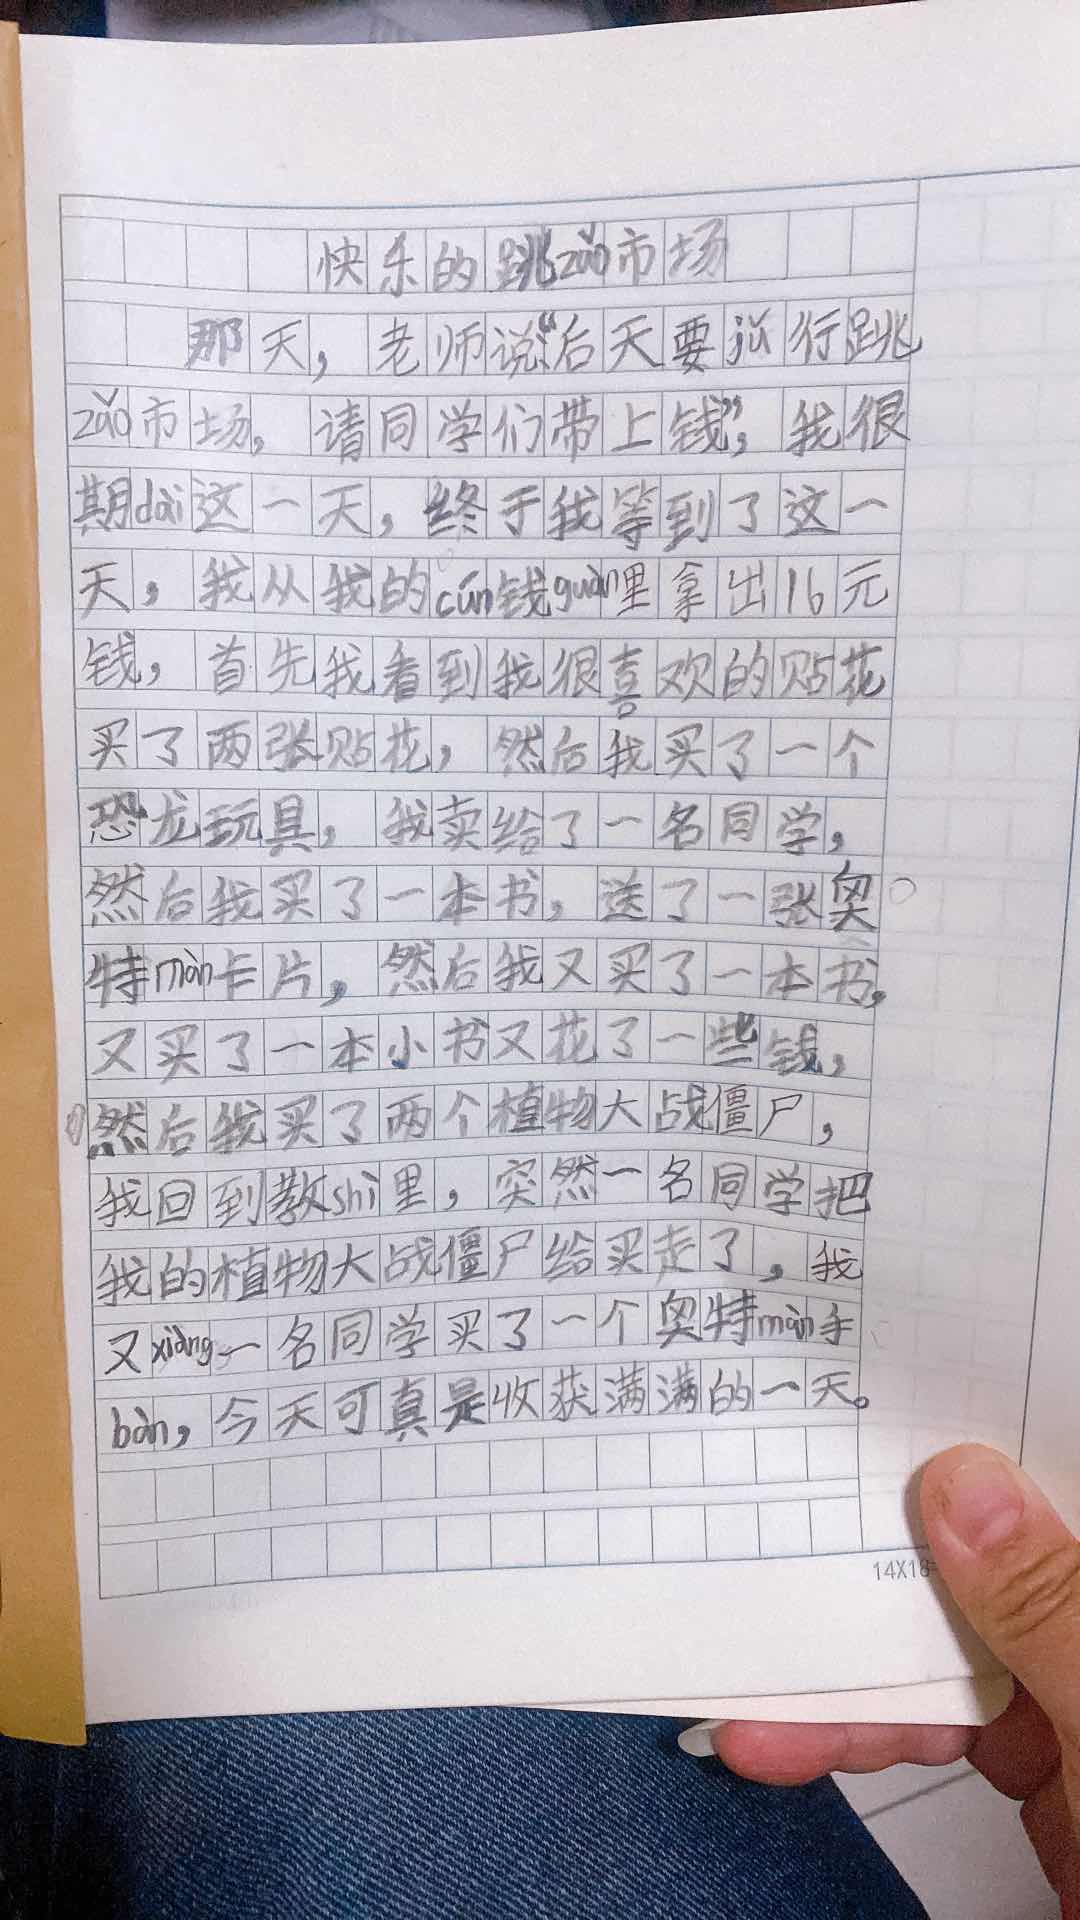 快乐的跳zǎo市场
那天，老师说：“后天要jǔ行跳
zǎo市场，请同学们带上钱”，我很
期dài这一天，终于我等到了这一
天，我从我的cún钱guàn里拿出16元
钱，首先我看到我很喜欢的贴花
买了两张贴花，然后我买了一个
恐龙玩具，我卖给了一名同学，
然后我买了一本书，送了一张奥
特màn卡片，然后我又买了一本书，
又买了一本小书又花了一些钱，
然后我买了两个植物大战僵尸，
我回到教shì里，突然一名同学把
我的植物大战僵尸给买走了，我
又xiàng一名同学买了一个奥特màn手
bàn，今天可真是收获满满的一天。
14X18=